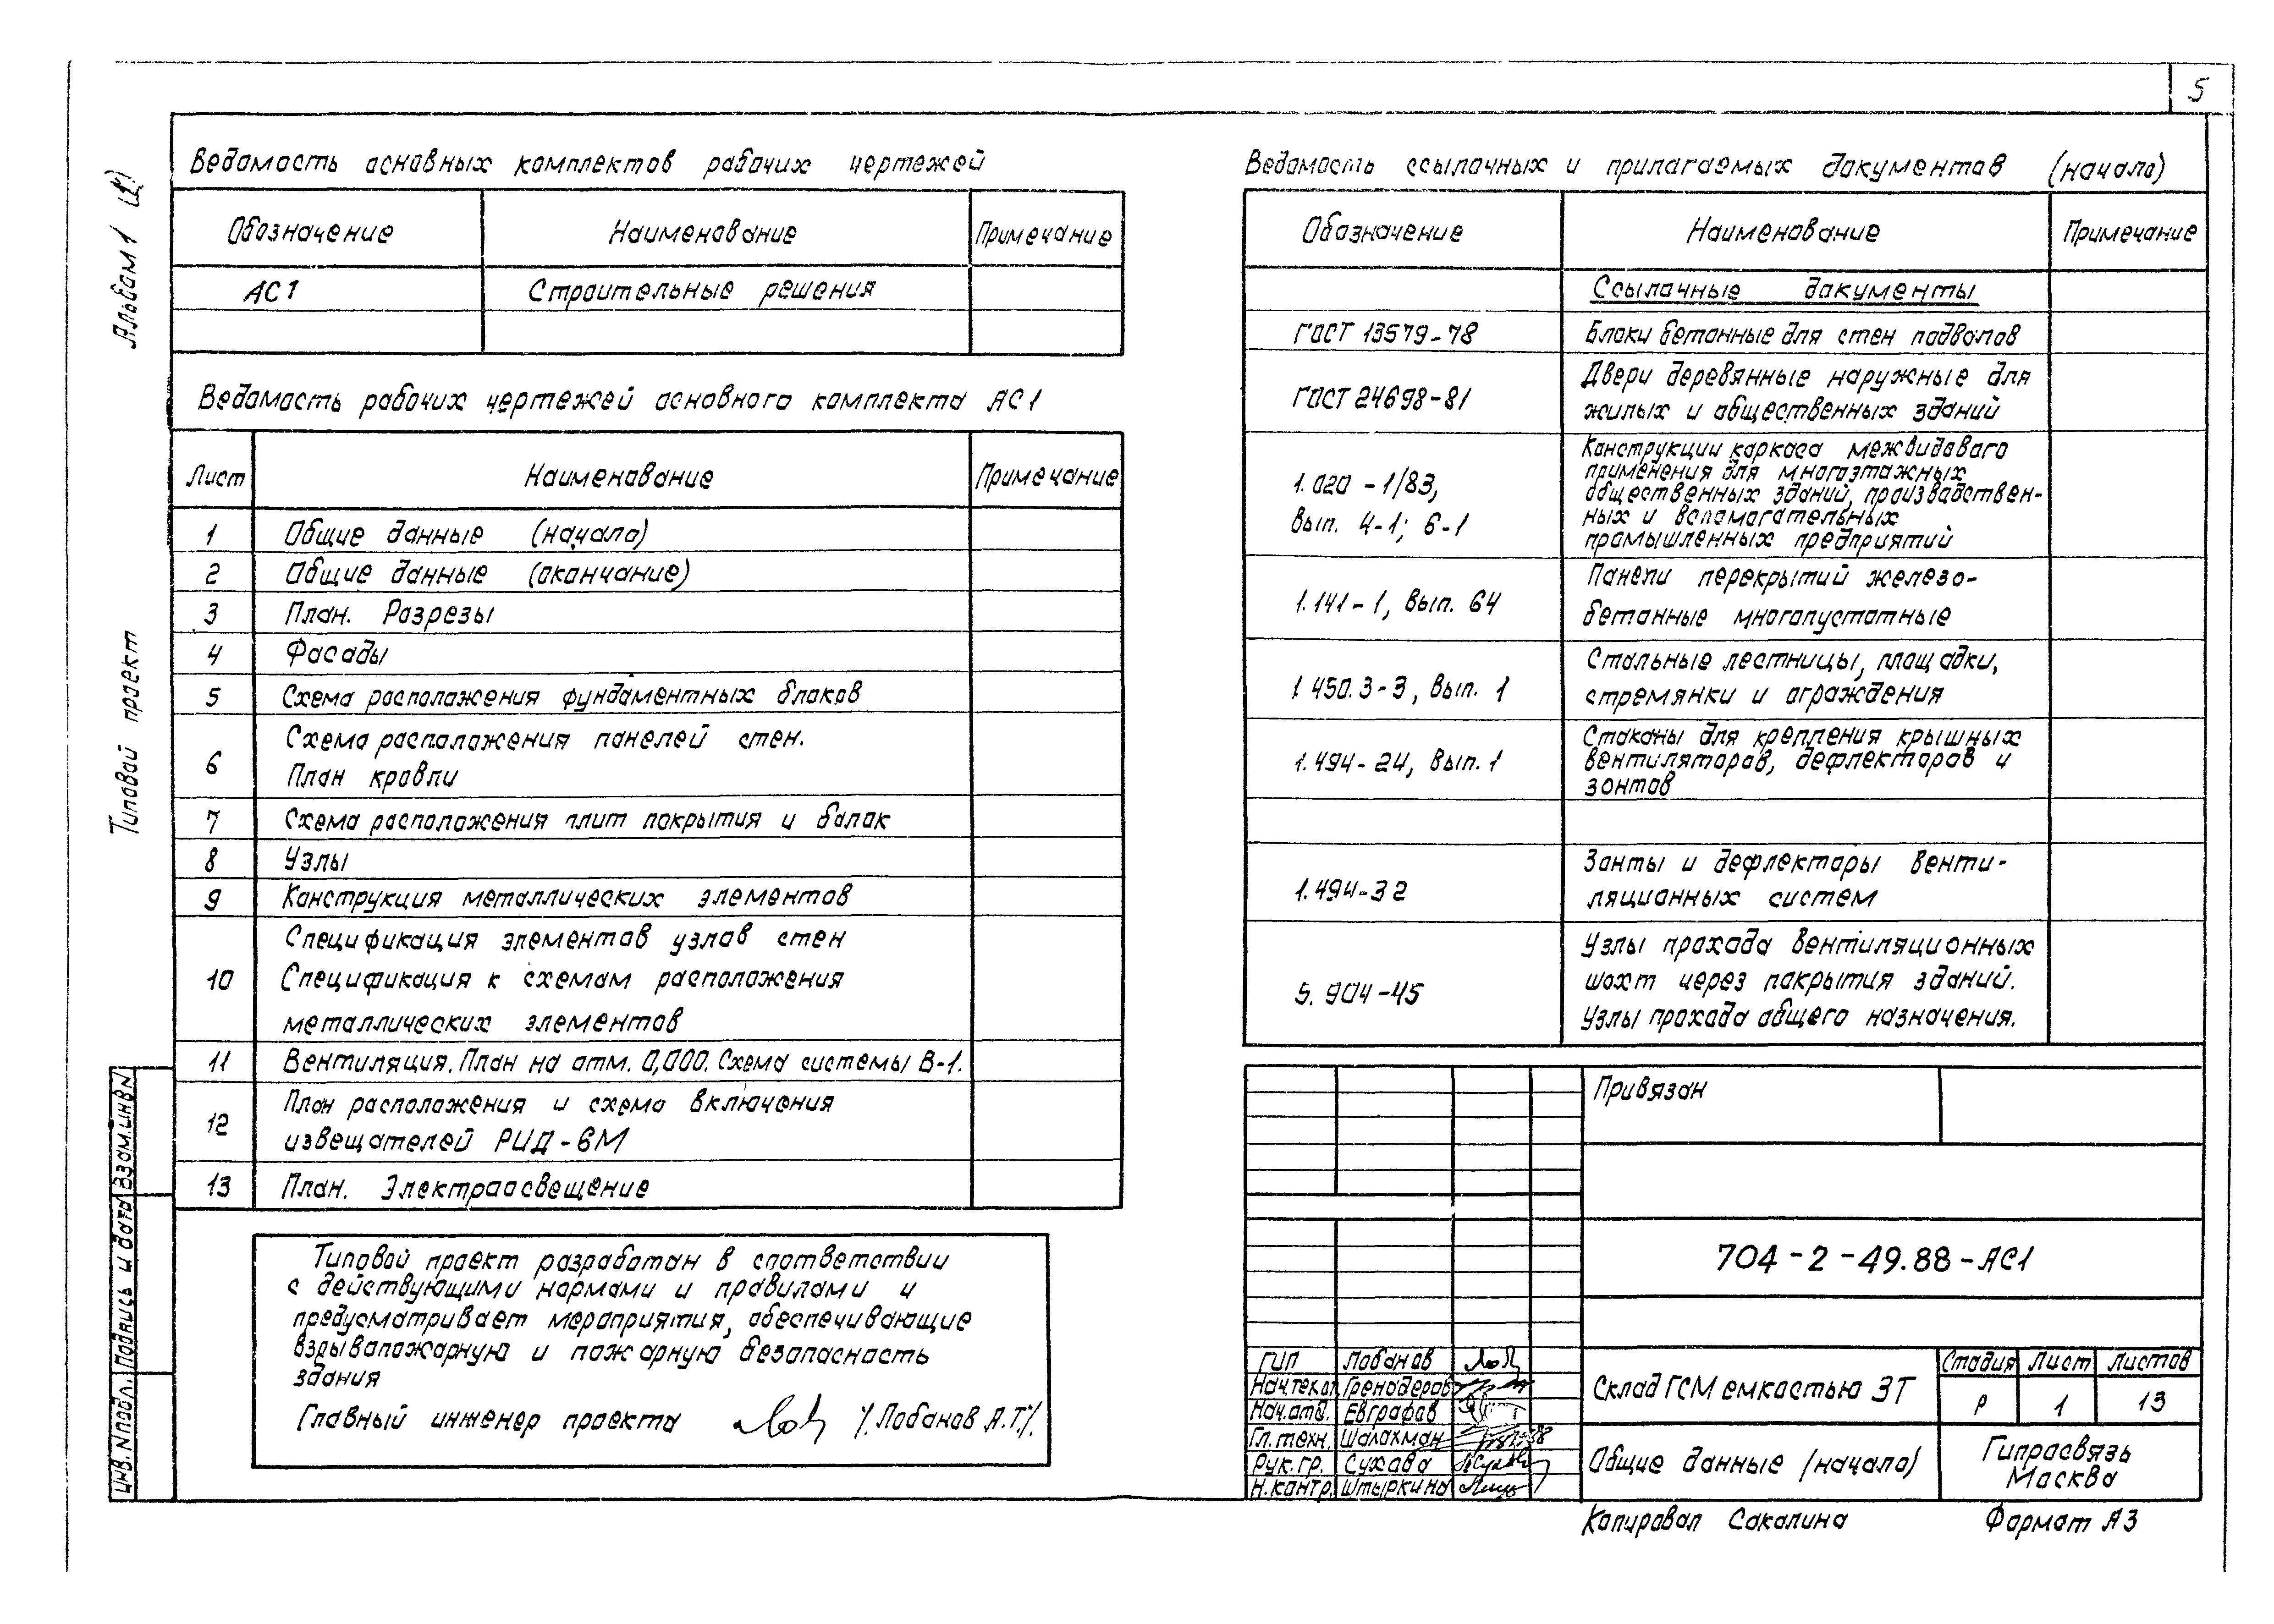 5
Альбом 1
Типовой проект
Ведомость основных комплектов рабочих чертежей
Обозначение Наименование Примечание
АС1 Строительные решения
Ведомость рабочих чертежей основного комплекта АС1
Лист Наименование Примечание
1 Общие данные (начало)
2 Общие данные (окончание)
3 План. Разрезы
4 Фасады
5 Схема расположения фундаментных блоков
6 Схема расположения панелей стен.
План кровли
7 Схема расположения плит покрытия и балок
8 Узлы
9 Конструкция металлических элементов
10 Спецификация элементов узлов стен
Спецификация к схемам расположения
металлических элементов
11 Вентиляция. План на отм. 0,000. Схема системы В-1.
12 План расположения и схема включения
извещателей РИД-6М
13 План. Электроосвещение
Типовой проект разработан в соответствии
с действующими нормами и правилами и
предусматривает мероприятия, обеспечивающие
взрывопожарную и пожарную безопасность
здания
Главный инженер проекта /Лобанов А.Т./
Ведомость ссылочных и прилагаемых документов (начало)
Обозначение Наименование Примечание
Ссылочные документы
ГОСТ 13579-78 Блоки бетонные для стен подвалов
ГОСТ 24698-81 Двери деревянные наружные для
жилых и общественных зданий
1.020-1/83,
Вып. 4-1; 6-1
Конструкции каркаса межвидового
применения для многоэтажных
общественных зданий, производствен-
ных и вспомогательных
промышленных предприятий
1.141-1, Вып. 64 Панели перекрытий железо-
бетонные многопустотные
1.450.3-3, Вып. 1 Стальные лестницы, площадки,
стремянки и ограждения
1.494-24, Вып. 1 Стаканы для крепления крышных
вентиляторов, дефлекторов и
зонтов
1.494-32 Зонты и дефлекторы венти-
ляционных систем
5.904-45 Узлы прохода вентиляционных
шахт через покрытия зданий.
Узлы прохода общего назначения.
Привязан
704-2-49.88-АС1
ГИП Лобанов
Нач.техот Гренадеров
Нач.отд. Евграфов
Гл.техн. Шалахман
Рук.гр. Сухова
Н.контр. Штыркина
Склад ГСМ емкостью 3Т
Стадия Лист Листов
Р 1 13
Общие данные (начало)
Гипросвязь
Москва
Копировал Соколина Формат А3
Взам.инв.N
Подпись и дата
Инв.Nподл.